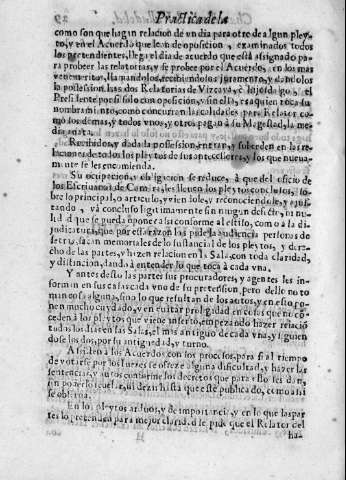 Practica de la
como son que hagan relacion de vn dia para otro de algun pley-
to, y en el Acuerdo que lean de oposicion, examinados todos
los pretendientes, llega el dia de acuerdo que està asignado pa-
ra probeer las relatorias, y se probee por el Acuerdo, en los mas
venemeritos, llamandolos, recibiendolos juramento, y dandolos
la possession, las dos Relatorias de Vizcaya, è lo juzgado, el
Presidente por si solo con oposicion, y sin ella, es a quien toca su
nombramiento, como concurran las calidades para Relator co-
mo los demas, y todos vnos, y otros pagan à su Magestad, la me-
dia anata.
Recibidos, y dada la possession, entran, y subceden en las
relaciones de todos los pleytos de sus antecessores, y los que nueua-
mente se les encomienda.
Su ocupacion, y obligacion se reduce, à que del oficio de
los Escriuanos de Camara, les lleuen los pleytos conclusos, so-
bre lo principal, o articulo, y vienole, y reconociendole, y ajus-
tando, và concluso legitimamente sin ningun defecto, ni nu-
lidad que se pueda oponer a ser conforme al estilo, como a la di-
judicatura, que por essa razon las pide la audiencia personas de
letras, sacan memoriales de lo sustancial de los pleytos, y dere-
cho de las partes, y hazen relacion en la Sala, con toda claridad,
y distincion, dando à entender lo que toca à cada vna.
Y antes desto las partes sus procuradores, y agentes les in-
forman en sus casas cada vno de su pretension, pero dello no to-
man cosa alguna, sino lo que resultan de los autos, y en esso po-
nen mucho cuydado, y en euitar prolixidad en cosas que no con-
ceden à los pleytos que viene inserto, empezando hazer relació
todos los dias en las Salas, el mas antiguo de cada vna, y siguien
dose los dos, por su antiguedad, y turno.
Assisten à los Acuerdos con los procesos, para si al tiempo
de votirse por los Iueces se ofreze alguna dificultad, y hazer las
sentencias, y autos conforme los decretos que para ello les dan,
sin poderlo reuelar, ni dezir hasta que estè publicado, como ahi
se obserua.
En los pleytos arduos, y de importancia, y en lo que las par-
tes lo pretenden para mejor claridad, se pide que el Relator del
H
ha-